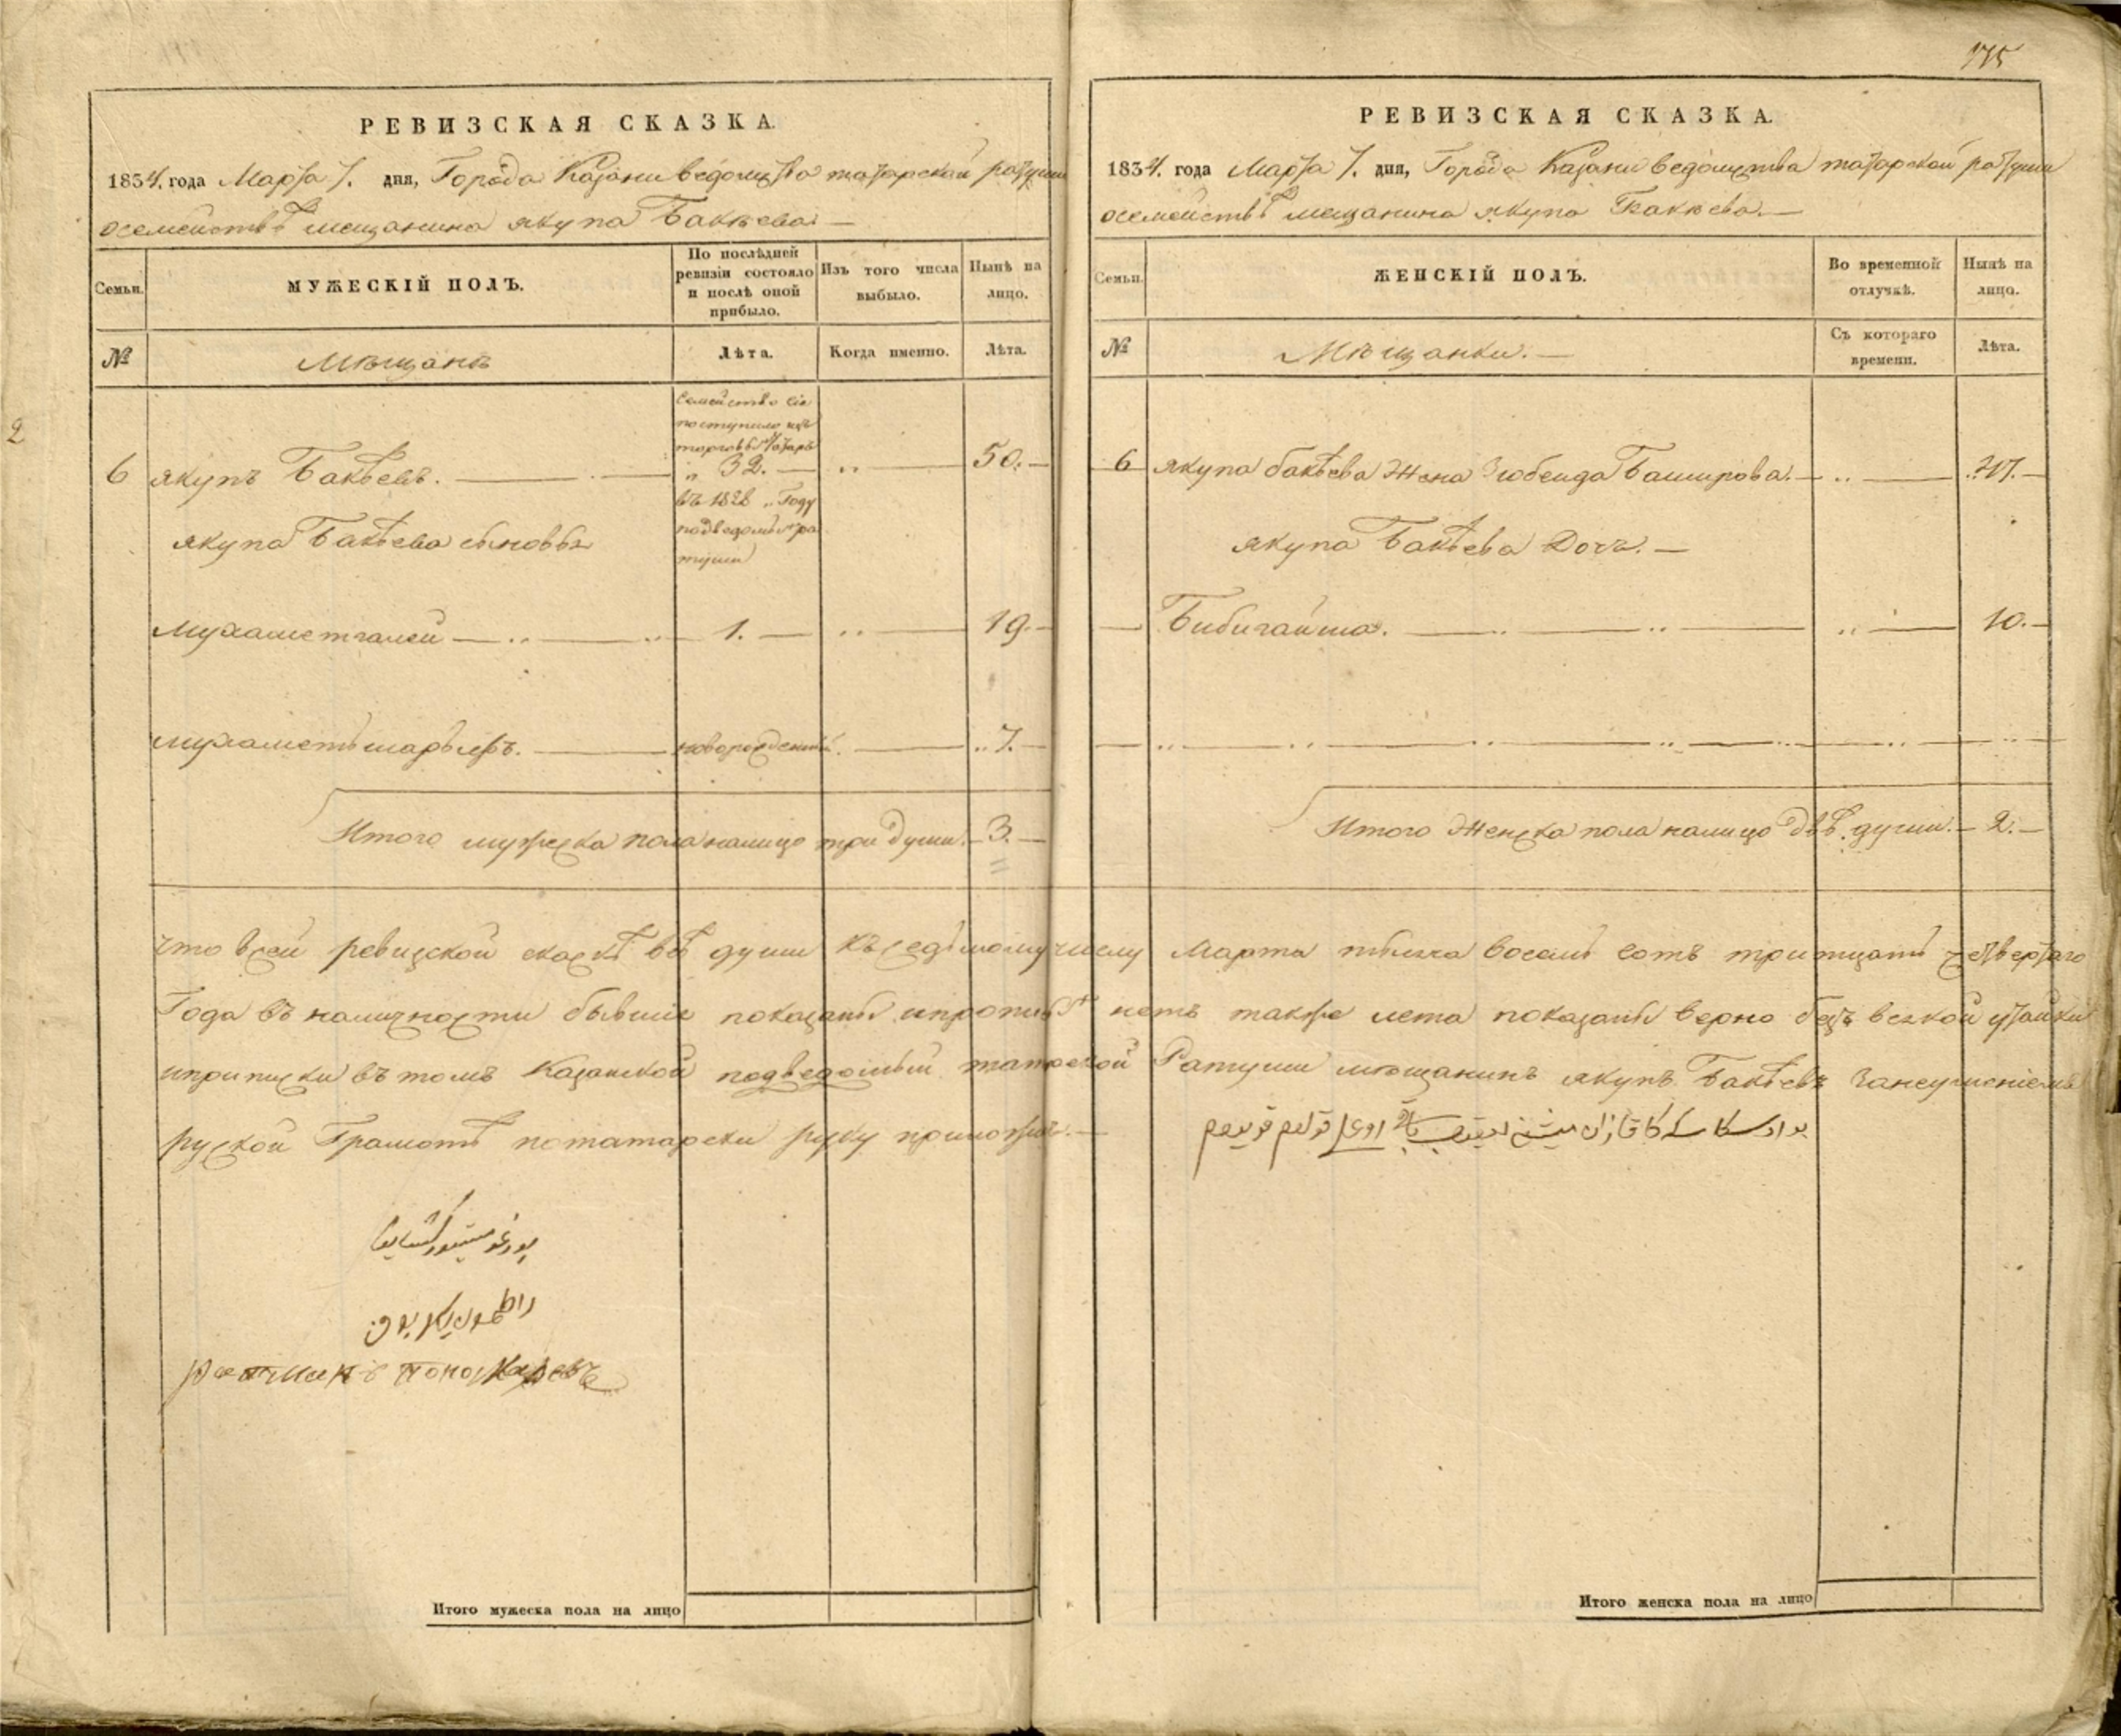 175
РЕВИЗСКАЯ СКАЗКА.
1834. года Марта 7. дня, Города Казани ведомства татарской ратуши
осемействѣ мещанина якупа Бакѣева. —
Семьи.
МУЖЕСКІЙ ПОЛЪ.
По послѣдней ревизіи состояло и послѣ оной прибыло.
Изъ того числа выбыло.
Нынѣ на лицо.
№
Мѣщанъ
Лѣта.
Когда именно.
Лѣта.
2
Семейство сіе
поступило изъ
торговыхъ татаръ
6 якупъ Бакѣевъ. — „ 32. — „ — 50. —
въ 1828 „ Году
подведомств ра
туши
якупа Бакѣева сыновья
Мухаметгалей — 1. — „ — 19. —
мухаметьшарыфъ. — новорожденный. — „ 7. —
Итого мужеска пола налицо три души. — 3. —
РЕВИЗСКАЯ СКАЗКА.
1834. года Марта 7. дня, Города Казани ведомства татарской ратуши
осемействѣ мещанина якупа Бакѣева. —
Семьи.
ЖЕНСКІЙ ПОЛЪ.
Во временной отлучкѣ.
Нынѣ на лицо.
№
Мѣщанки. —
Съ котораго времени.
Лѣта.
6 якупа бакѣева Жена Зюбеида Баширова. — „ —
якупа Бакѣева Дочь. —
Бибигайша. — „ — 10. —
Итого Женска пола налицо двѣ души. — 2. —
что всей ревизской скаскѣ всѣ души къ седьмому числу Марта тысеча восемь сотъ тритцать четвертаго
Года въ наличности бывшіе показаны ипропи нетъ также лета показаны верно безъ всякой утайки
иприписки въ томъ Казанской подведомый татарской Ратуши мещанинъ якупъ Бакѣевъ занеумениемъ
руской Грамотѣ потатарски руку приложилъ. —
ратманъ Пономаревъ
Итого мужеска пола на лицо
Итого женска пола на лицо